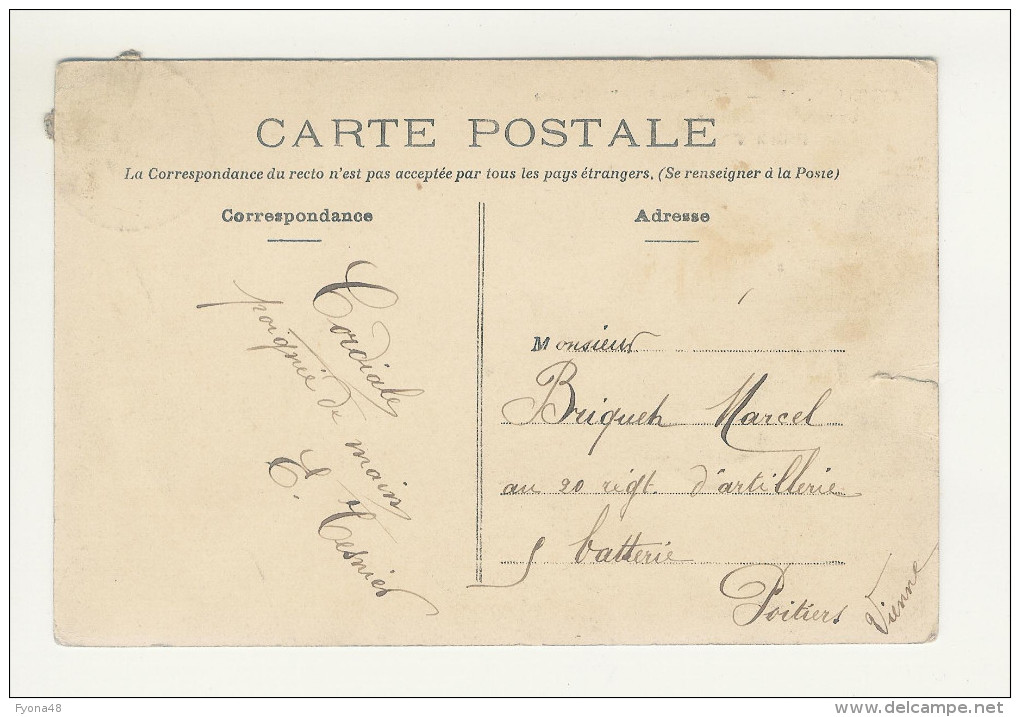 CARTE POSTALE
La Correspondance du recto n'est pas acceptée par tous les pays étrangers. (Se renseigner à la Poste)
Correspondance
Cordiale
poignée de main
E.
Adresse
Monsieur
Marcel
au 20 régt. d'artillerie
batterie
Poitiers
Vienne
Fyona48
www.delcampe.net